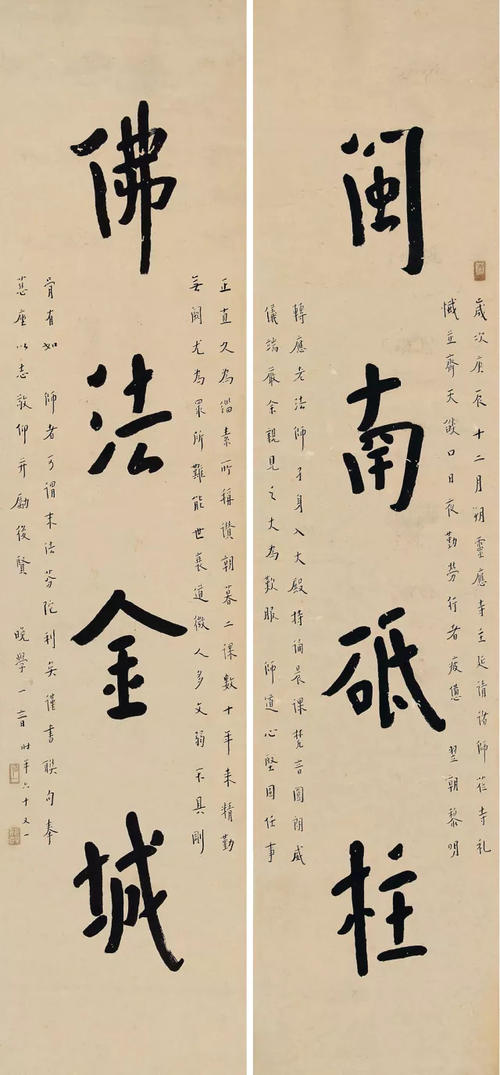 歲次庚辰十二月朔靈應寺主延請諸師蒞寺礼
懺並齊天燄口日夜勤勞行者疲憊 翌朝黎明
閩南砥柱
轉應老法師孑身入大殿持誦晨課梵音圓朗威
儀端嚴余親見之大為歎服 師道心堅固任事
正直久為緇素所稱讚朝暮二課數十年来精勤
無闕尤為眾所難能世衰道微人多文弱不具剛
佛法金城
骨有如 師者可謂末法芬陀利矣謹書聯句奉
慧座以志敬仰并勵後賢 晚學一音 時年六十又一